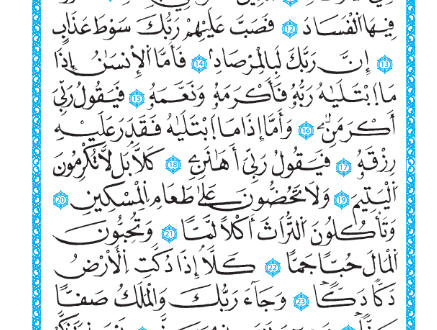 فِيهَا اَلْفَسَادَ 12 فَصَبَّ عَلَيْهِمْ رَبُّكَ سَوْطَ عَذَابٍ
13 إِنَّ رَبَّكَ لَبِالْمِرْصَادِ 14 فَأَمَّا اَلْإِنسَٰنُ إِذَا
مَا اَبْتَلَيٰهُ رَبُّهُ فَأَكْرَمَهُ وَنَعَّمَهُ 15 فَيَقُولُ رَبِّيَ
أَكْرَمَنِ 16 وَأَمَّا إِذَا مَا اَبْتَلَيٰهُ فَقَدَرَ عَلَيْهِ
رِزْقَهُ 17 فَيَقُولُ رَبِّيَ أَهَانَنِ 18 كَلَّا بَل لَّا تُكْرِمُونَ
اَلْيَتِيمَ 19 وَلَا تَحُضُّونَ عَلَىٰ طَعَامِ اِلْمِسْكِينِ 20
وَتَأْكُلُونَ اَلتُّرَاثَ أَكْلًا لَّمًّا 21 وَتُحِبُّونَ
اَلْمَالَ حُبًّا جَمًّا 22 كَلَّا إِذَا دُكَّتِ اِلْأَرْضُ
دَكًّا دَكًّا 23 وَجَآءَ رَبُّكَ وَالْمَلَكُ صَفًّا